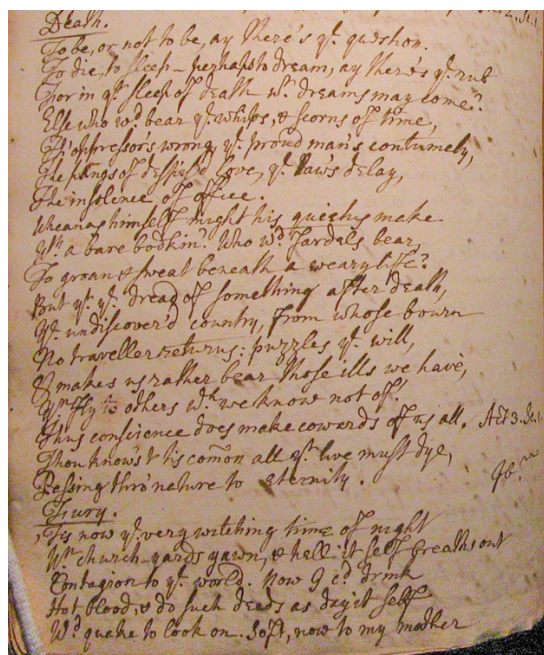 Death.
To be, or not to be, ay there's yt. question.
To die, to sleep – perhaps to dream, ay there's yt. rub
For in yt. sleep of death wt. dreams may come?
Else who wd. bear yt. whips, & scorns of time,
Th' oppressor's wrong, yt. proud man's contumely,
The pangs of despis'd love, yt. law's delay,
The insolence of office.
Wheanas himself might his quietus make
Wth a bare bodkin? Who wd. fardels bear,
To groan & sweat beneath a weary life?
But yt. yt. dread of something after death,
Yt. undiscover'd country, from whose bourn
No traveller returns: puzzles yt. will,
& makes us rather bear those ills we have,
yn fly to others wh. we know not of.
Thus conscience does make cowards of us all. Act 3. Sc. 1.
Thou know'st 'tis com̄on all yt. live must dye,
Passing thro' nature to eternity.
Fury.
'Tis now yt. very witching time of night
Wn church-yards yawn, & hell it self breaths out
Contagion to yt. world. Now I cd. drink
Hot blood, & do such deeds as day it self
Wd quake to look on. Soft, now to my mother